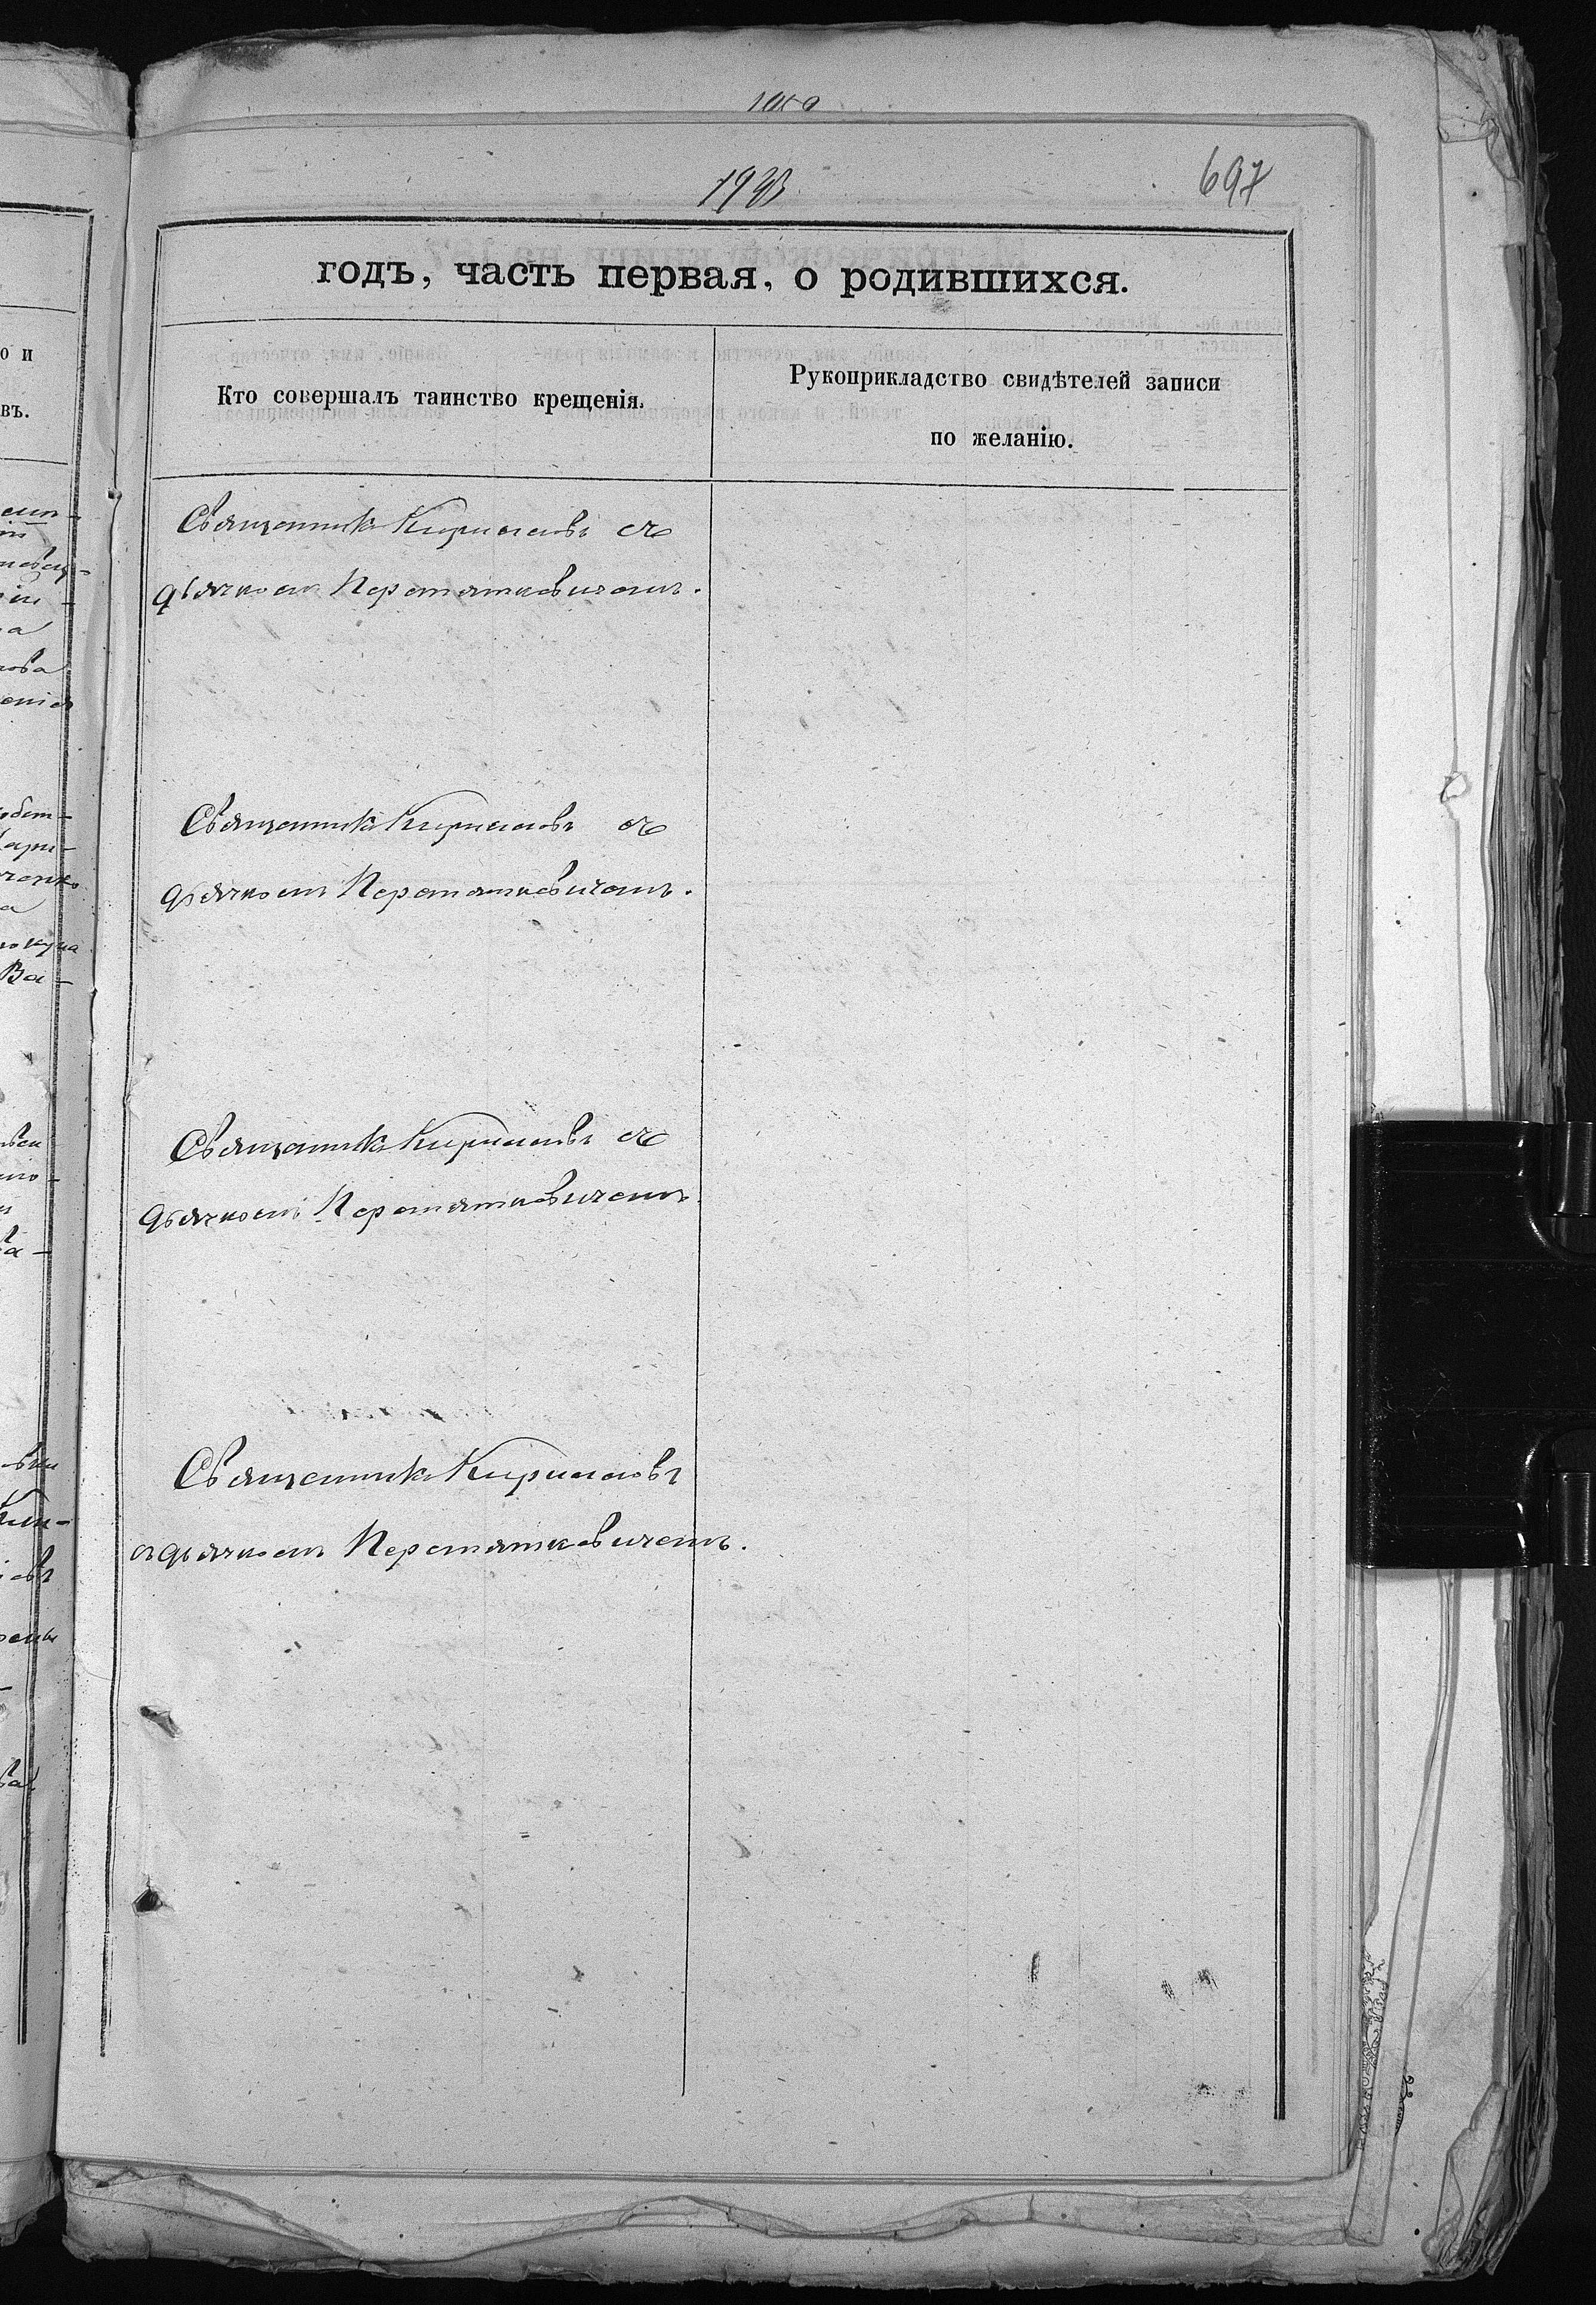 697
годъ, часть первая, о родившихся.
Кто совершалъ таинство крещенія.
Рукоприкладство свидѣтелей записи
по желанію.
Священникъ Кириловъ съ
дьячкомъ Перетятковичемъ.
Священникъ Кириловъ съ
дьячкомъ Перетятковичемъ.
Священникъ Кириловъ съ
дьячкомъ Перетятковичемъ.
Священникъ Кириловъ
съ дьячкомъ Перетятковичемъ.